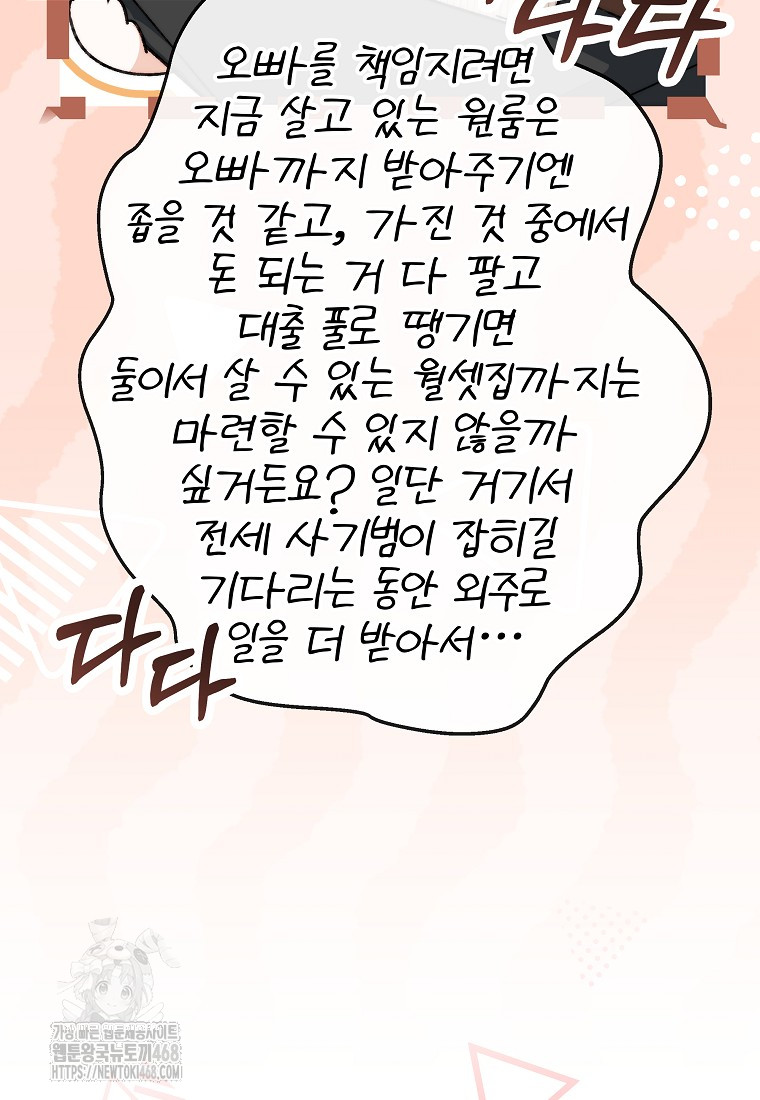 다다
오빠를 책임지려면
지금 살고 있는 원룸은
오빠까지 받아주기엔
좁을 것 같고, 가진 것 중에서
돈 되는 거 다 팔고
대출 풀로 땡기면
둘이서 살 수 있는 월셋집까지는
마련할 수 있지 않을까
싶거든요? 일단 거기서
전세 사기범이 잡히길
기다리는 동안 외주로
일을 더 받아서…
다다
가장 빠른 웹툰제공사이트
웹툰왕국뉴토끼468
HTTPS://NEWTOKI468.COM